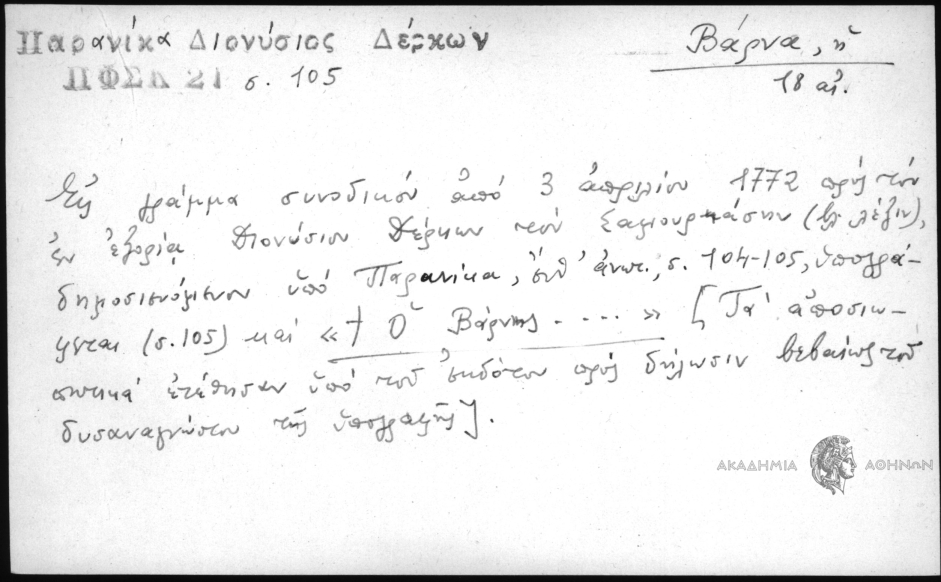 Παρανίκα Διονύσιος Δέρκων
ΠΦΣΚ 21 σ. 105
Βάρνα, ἡ
18 αἰ.
Εἰς γράμμα συνοδικόν ἀπό 3 ἀπριλίου 1772 πρός τόν
ἐν ἐξορίᾳ Διονύσιον Δέρκων τόν (βλ. λέξιν),
δημοσιευόμενον ὑπό Παρανίκα, ἔνθ' ἀνωτ., σ. 104-105, ὑπογρά-
φεται (σ. 105) καί «† Ὁ Βάρνης ....» [Τά ἀποσιω-
πητικά ἐτέθησαν ὑπό τοῦ ἐκδότου πρός δήλωσιν βεβαίως τοῦ
δυσαναγνώστου τῆς ὑπογραφῆς].
ΑΚΑΔΗΜΙΑ ΑΘΗΝΩΝ